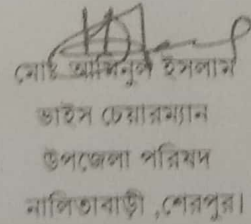 মোঃ আমিনুল ইসলাম
ভাইস চেয়ারম্যান
উপজেলা পরিষদ
নালিতাবাড়ী ,শেরপুর।